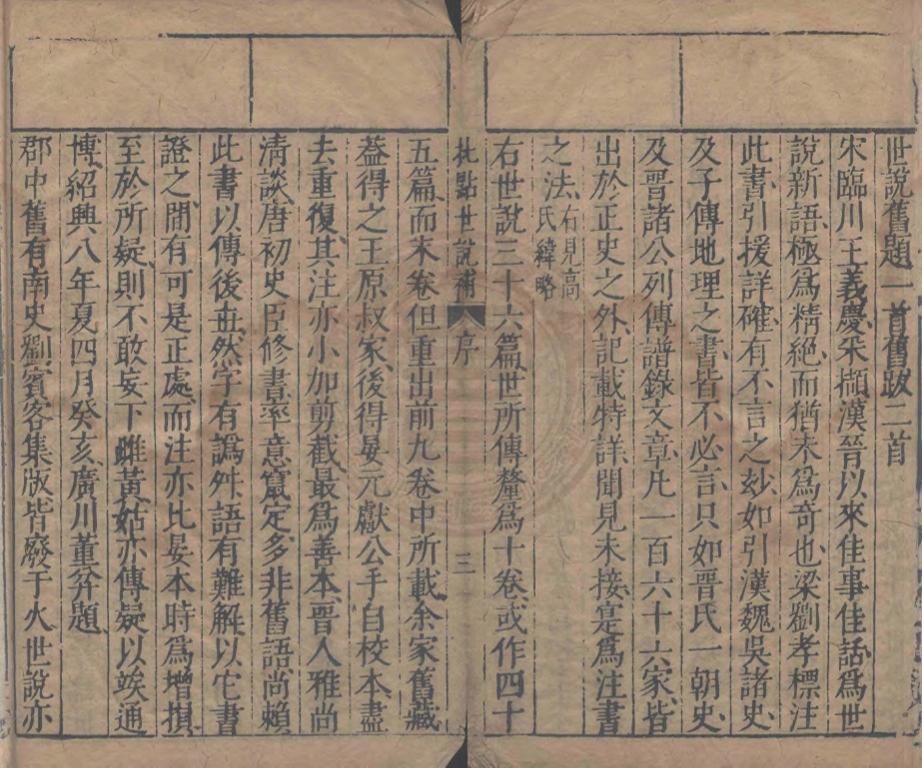 世說舊題一首舊跋二首
宋臨川王義慶采擷漢晉以來佳事佳話爲世
說新語極爲精絕而猶未爲奇也梁劉孝標注
此書引援詳確有不言之玅如引漢魏吳諸史
及子傳地理之書皆不必言只如晉氏一朝史
及晉諸公列傳譜錄文章凡一百六十六家皆
出於正史之外記載特詳聞見未接寔爲注書
之法右見高氏緯略
右世說三十六篇世所傳釐爲十卷或作四十
批點世說補 序 三
五篇而末卷但重出前九卷中所載余家舊藏
葢得之王原叔家後得晏元獻公手自校本盡
去重復其注亦小加剪截最爲善本晉人雅尚
清談唐初史臣修書率意竄定多非舊語尚賴
此書以傳後世然字有譌舛語有難解以它書
證之間有可是正處而注亦比晏本時爲增損
至於所疑則不敢妄下雌黃姑亦傳疑以竢通
博紹興八年夏四月癸亥廣川董弅題
郡中舊有南史劉賓客集版皆廢于火世說亦